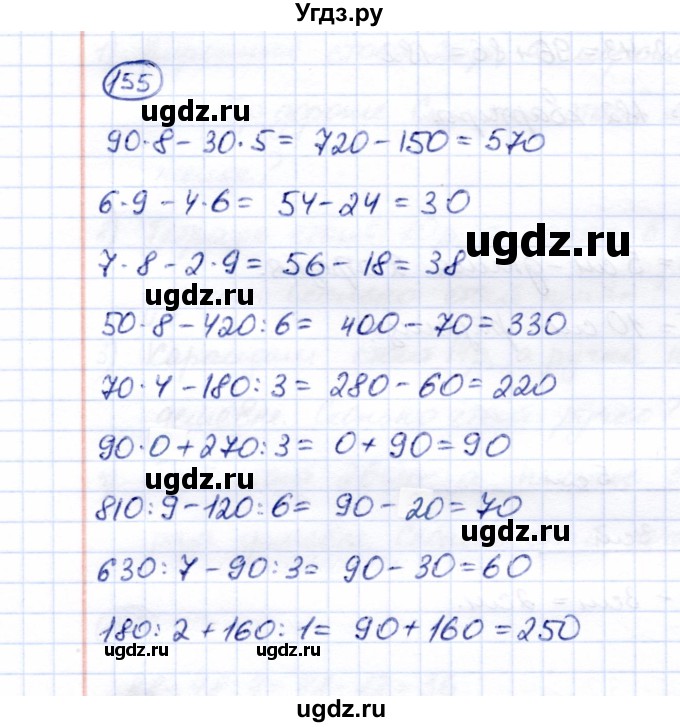 Угдз.ру
155
90·8−30·5= 720−150=570
6·9−4·6= 54−24=30
7·8−2·9= 56−18=38
50·8−420:6= 400−70=330
70·4−180:3= 280−60=220
90·0+270:3= 0+90=90
810:9−120:6= 90−20=70
630:7−90:3= 90−30=60
180:2+160:1= 90+160=250
ugdz.ru
ugdz.ru
ugdz.ru
ugdz.ru
ugdz.ru
ugdz.ru
ugdz.ru
ugdz.ru
ugdz.ru
ugdz.ru